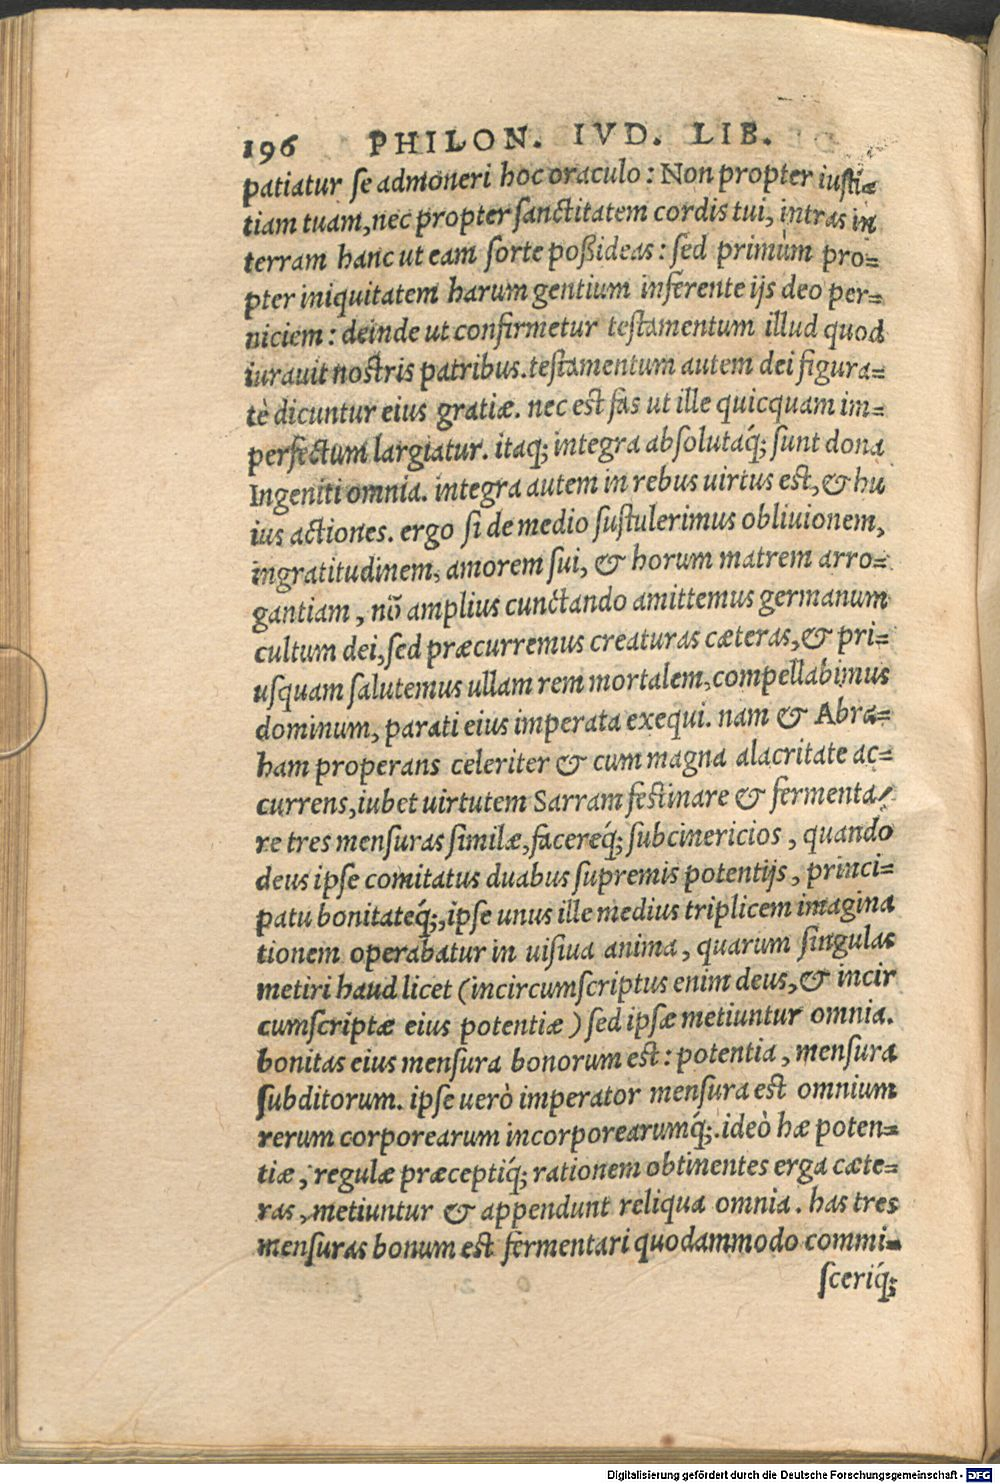 196 PHILON. IVD. LIB.
patiatur se admoneri hoc oraculo: Non propter iusti=
tiam tuam, nec propter sanctitatem cordis tui, intras in
terram hanc ut eam sorte poßideas: sed primùm pro=
pter iniquitatem harum gentium inferente ijs deo per=
niciem: deinde ut confirmetur testamentum illud quod
iurauit nostris patribus. testamentum autem dei figura=
tè dicuntur eius gratiæ. nec est fas ut ille quicquam im=
perfectum largiatur. itaq; integra absolutaq́; sunt dona
Ingeniti omnia. integra autem in rebus uirtus est, & hu
ius actiones. ergo si de medio sustulerimus obliuionem,
ingratitudinem, amorem sui, & horum matrem arro=
gantiam, nō amplius cunctando amittemus germanum
cultum dei, sed præcurremus creaturas cæteras, & pri=
usquam salutemus ullam rem mortalem, compellabimus
dominum, parati eius imperata exequi. nam & Abra=
ham properans celeriter & cum magna alacritate ac=
currens, iubet uirtutem Sarram festinare & fermenta/
re tres mensuras similæ, facereq́; subcinericios, quando
deus ipse comitatus duabus supremis potentijs, princi=
patu bonitateq́;, ipse unus ille medius triplicem imagina
tionem operabatur in uisiua anima, quarum singulas
metiri haud licet (incircumscriptus enim deus, & incir
cumscriptæ eius potentiæ) sed ipsæ metiuntur omnia.
bonitas eius mensura bonorum est: potentia, mensura
subditorum. ipse uerò imperator mensura est omnium
rerum corporearum incorporearumq́;. ideò hæ poten=
tiæ, regulæ præceptiq́; rationem obtinentes erga cæte=
ras, metiuntur & appendunt reliqua omnia. has tres
mensuras bonum est fermentari quodammodo commi=
sceriq́;
Digitalisierung gefördert durch die Deutsche Forschungsgemeinschaft - DFG